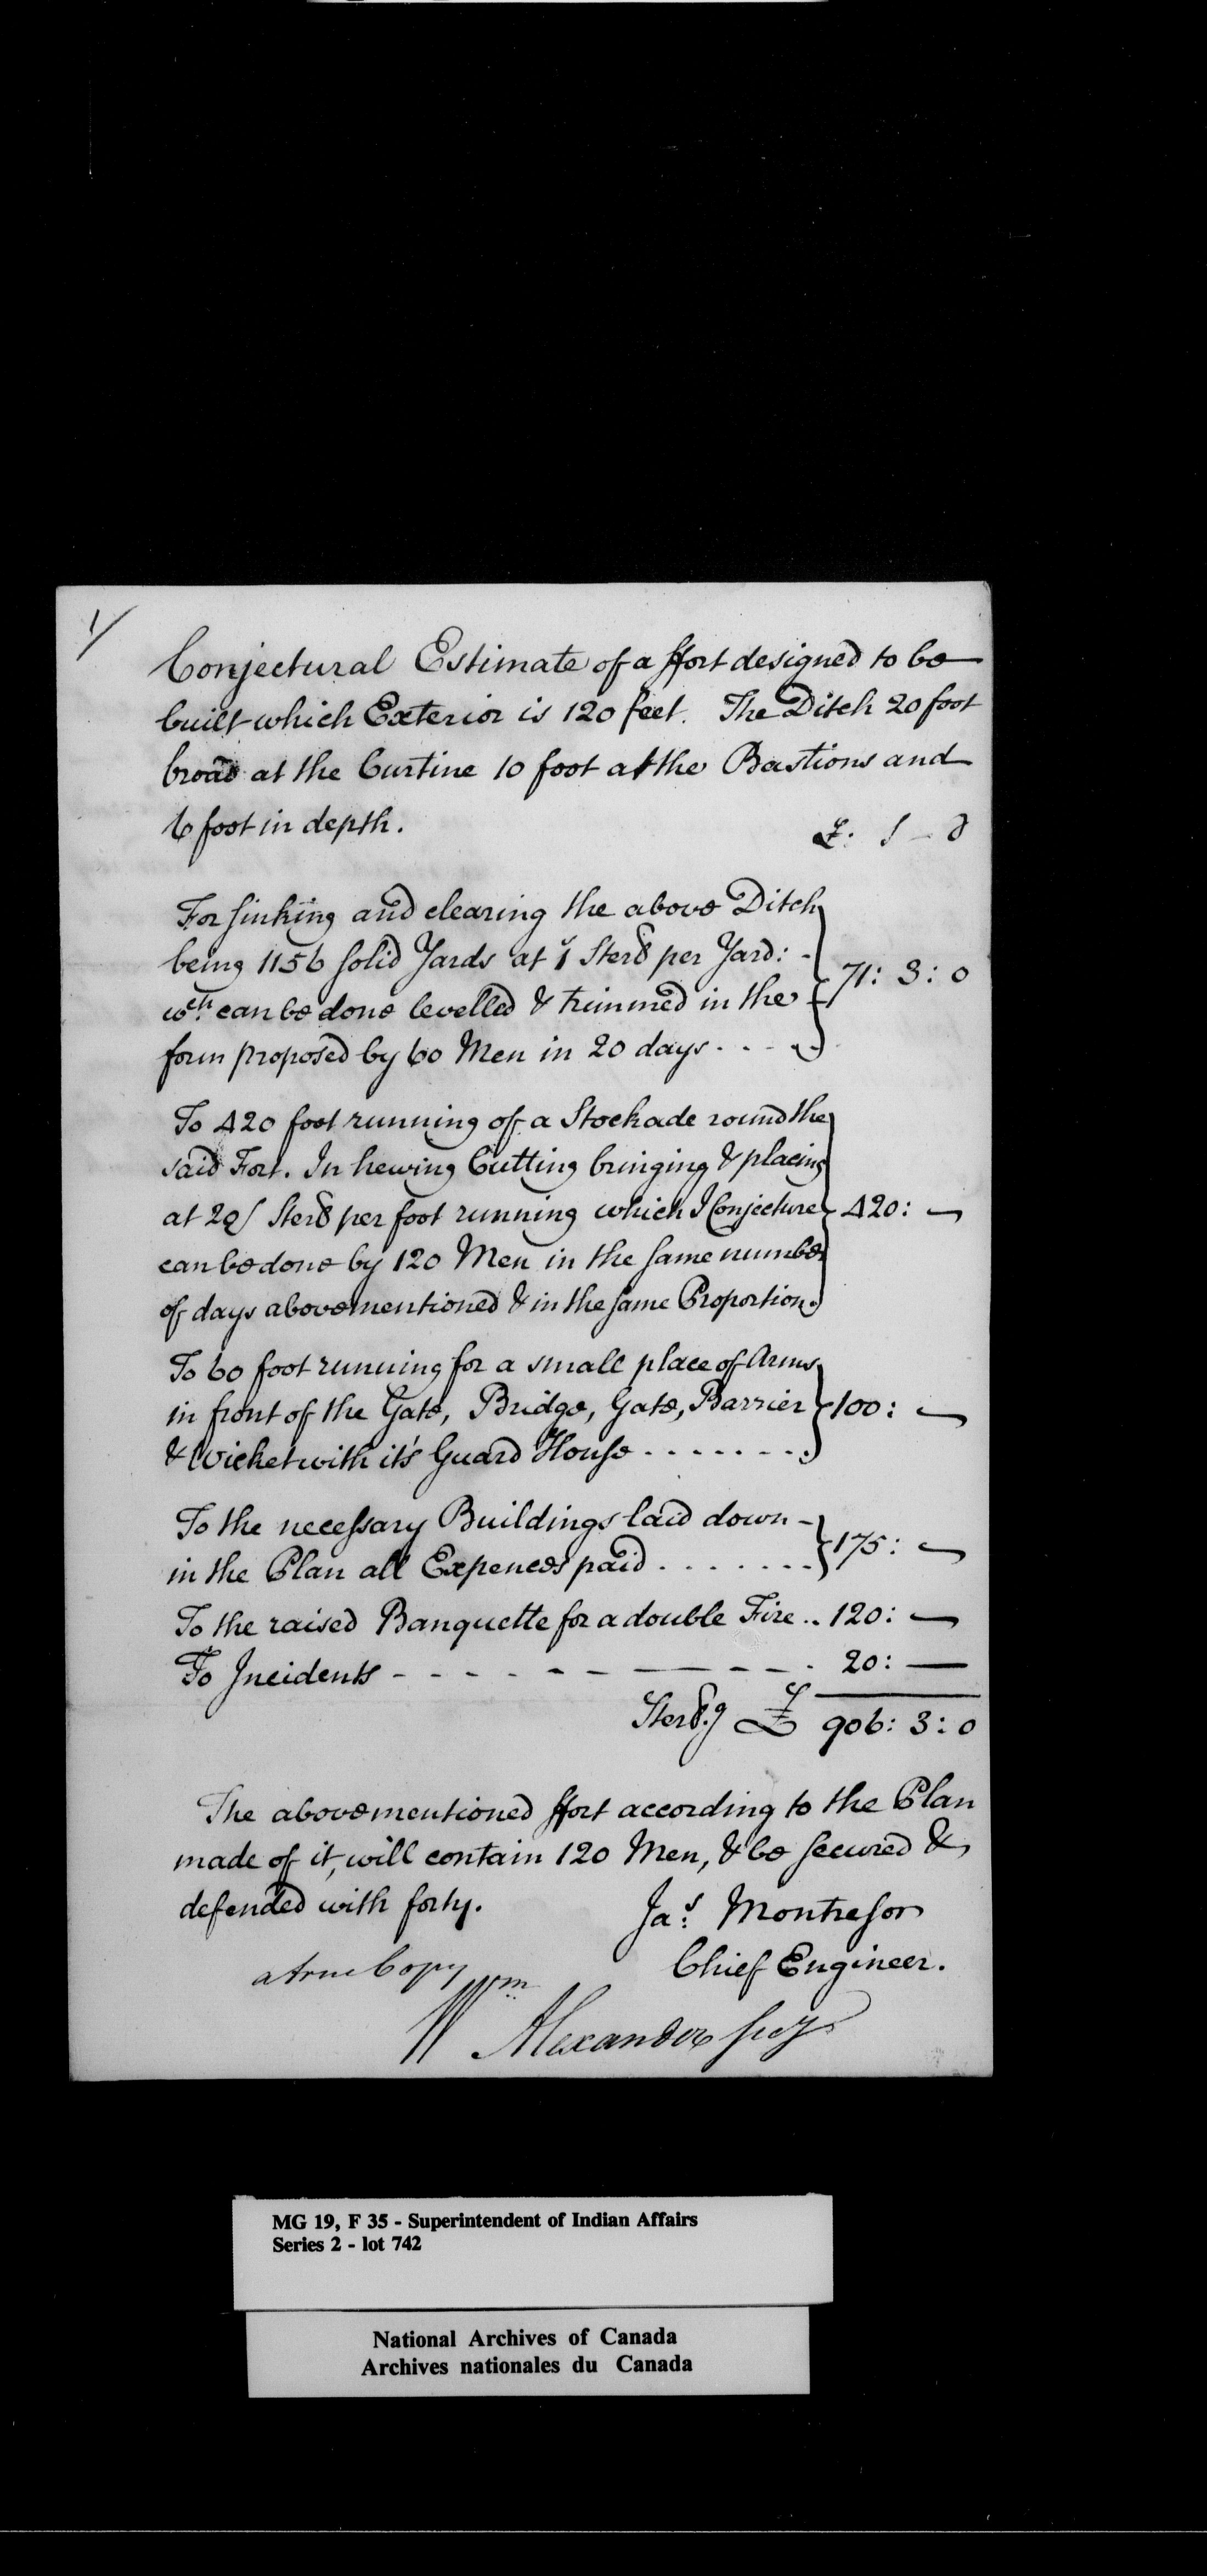 1/
Conjectural Estimate of a ffort designed to be
built which Exterior is 120 feet. The Ditch 20 foot
broad at the Curtine 10 foot at the Bastions and
6 foot in depth.
£: S - d
For sinking and clearing the above Ditch
being 1156 solid Yards at per Yard: -
wch. can be done levelled & trimmed in the
form proposed by 60 Men in 20 days - - - -
71: 3: 0
To 420 foot running of a Stockade round the
said Fort. In hewing Cutting bringing & placing
at per foot running which I Conjecture
can be done by 120 Men in the same number
of days abovementioned & in the same Proportion.
420: —
To 60 foot running for a small place of Arms
in front of the Gate, Bridge, Gate, Barrier
& Wicket with it's Guard House - - - - - - -
100: —
To the necessary Buildings laid down -
in the Plan all Expences paid - - - - - - -
175: —
To the raised Banquette for a double Fire .. 120: —
To Incidents - - - - - - - - - - 20: —
£ 906: 3: 0
The abovementioned ffort according to the Plan
made of it, will contain 120 Men, & be secured &
defended with forty.
Jas: Montresor
Chief Engineer.
a true Copy
Wm Alexander Secy
MG 19, F 35 - Superintendent of Indian Affairs
Series 2 - lot 742
National Archives of Canada
Archives nationales du Canada